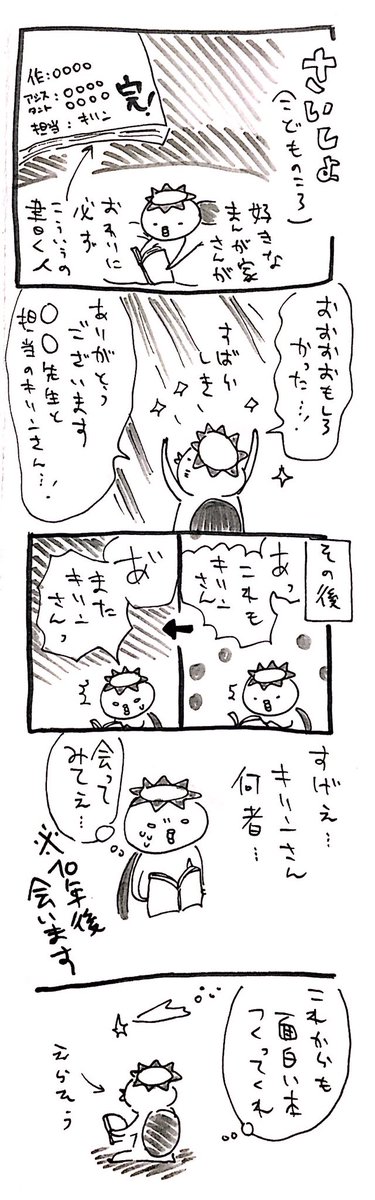 さいしょ
(こどものころ)
作:○○○○
アシス
タント:○○○○
○○○○
担当:キリン
完!
好きな
まんが家
さんが
おわりに
必ず
こういうの
書く人
おおおおもしろ
かった…!
すばら
しき
ありがとう
ございます
○○先生と
担当のキリンさん…!
その後
あっ
これも
キリン
さん
あ゛
また
キリン
さんっ
すげぇ…
キリンさん
何者…
会って
みてぇ…
※10年後
会います
これからも
面白い本
つくってくれ
えらそう